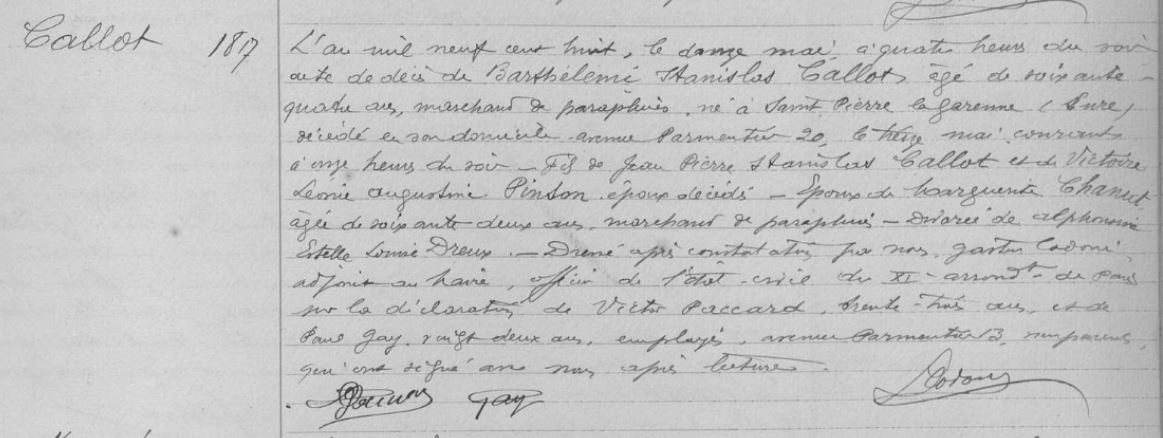 Callot 1817
L'an mil neuf cent huit, le donze mai, à quatre heures du soir
acte de décès de Barthélémi Stanislas Callot, âgé de soixante-
quatre ans, marchand de parapluies, né à Saint Pierre la garenne (Eure)
décédé en son domicile avenue Parmentier 20, le treize mai courant
à onze heures du soir – Fils de Jean Pierre Stanislas Callot et de Victoire
Léonie Augustine Pinson époux décédés – Epoux de Marguerite Chanut
âgée de soixante deux ans, marchand de parapluies – Divorcé de Alphonsine
Estelle Louise Dreux. – Dressé après constatation par nous, gaston
adjoint au maire, officier de l'état-civil du XI arrondt de Paris
sur la déclaration de Victor Paccard, trente-trois ans, et de
Paul Gay, vingt deux ans, employés, avenue Parmentier 13, non parents,
qui ont signé avec nous après lecture.
Gay